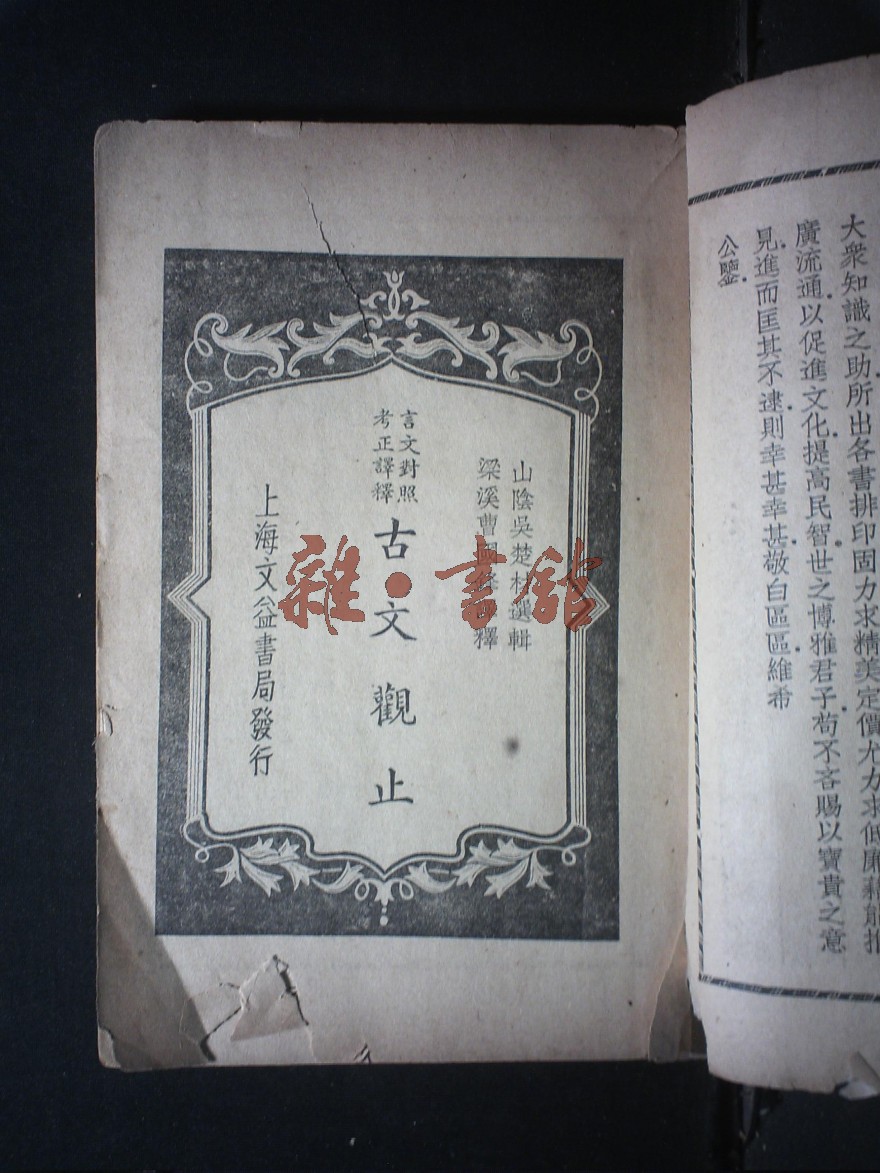 大衆知識之助所出各書排印固力求精美定價尤力求低廉藉能推
廣流通以促進文化提高民智世之博雅君子茍不吝賜以寶貴之意
見進而匡其不逮則幸甚幸甚敬白區區維希
公鑒
山陰吳楚材選輯
梁溪曹國鋒譯釋
言文對照
考正譯釋
古文觀止
上海文益書局發行
雜·書館